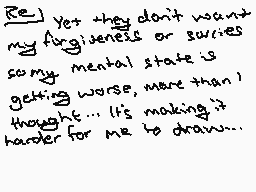 Re) Yet they don't want
my forgiveness or sorries
so my mental state is
getting worse, more than I
thought... It's making it
harder for me to draw...